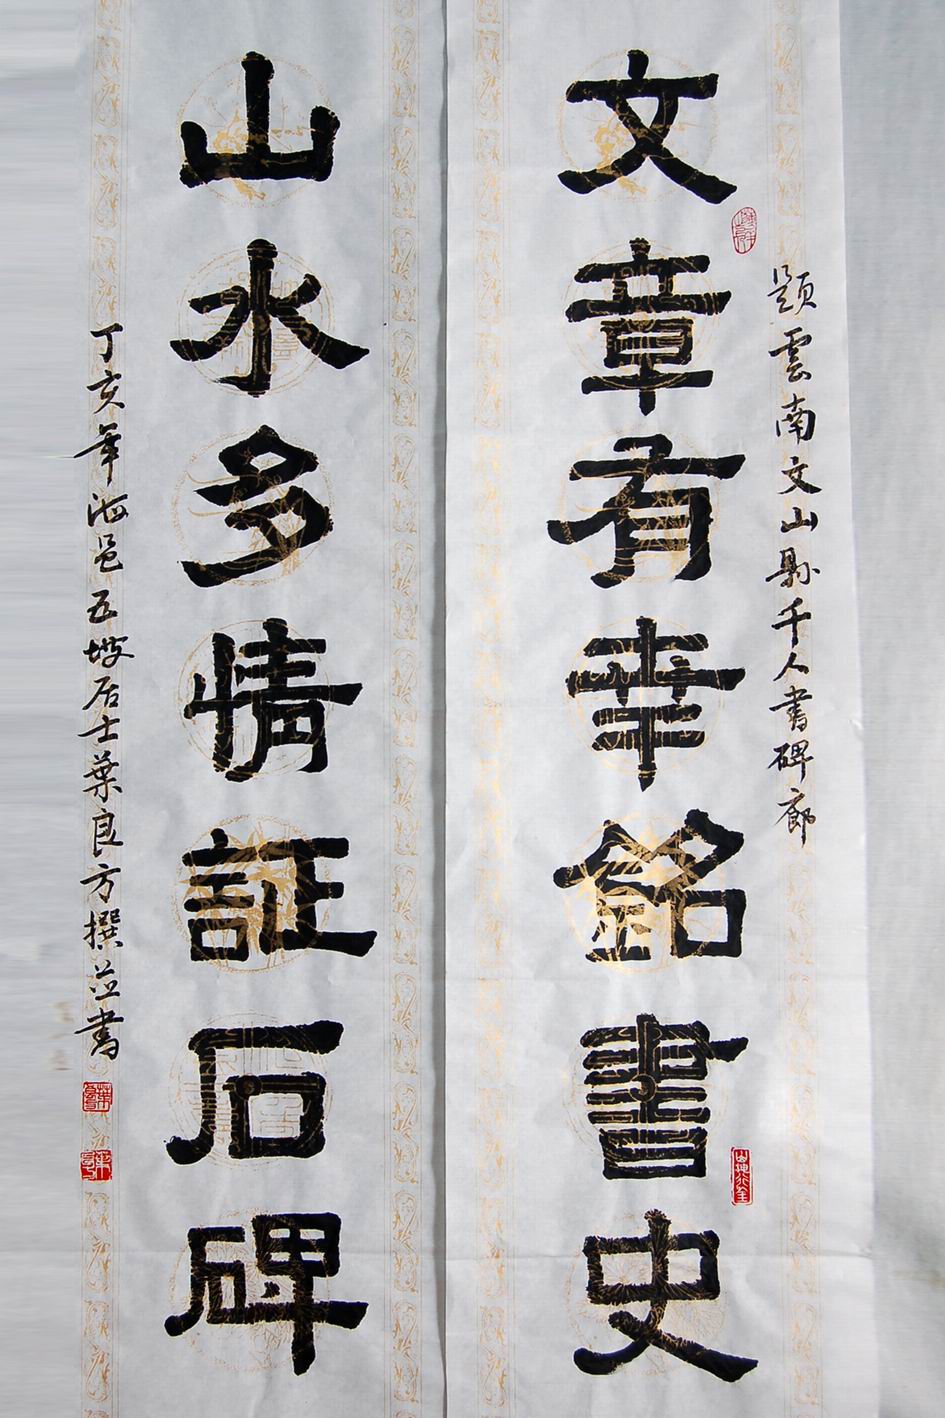 題雲南文山縣千人書碑廊
文章有幸銘書史
山水多情証石碑
丁亥年海邑五坡居士葉良方撰並書